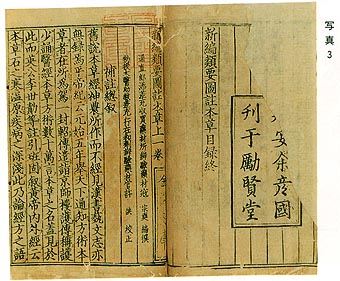 写真3
新編類要圖註本草目録終
安余彦國
刊于勵賢堂
新編類要圖註本草上一卷
補註總叙
舊説本草經神農所作而不經見漢書藝文志亦
無録焉平帝紀云元始五年舉天下通知方術本
草者在所爲駕一封軺傳遣詣京師樓護傳稱護
少誦醫經本草方術數十萬言本草之名蓋見於
此而英公李世勣等註引班固叙黄帝内外經云
本草石之寒温原疾病之深淺此乃論經方之語